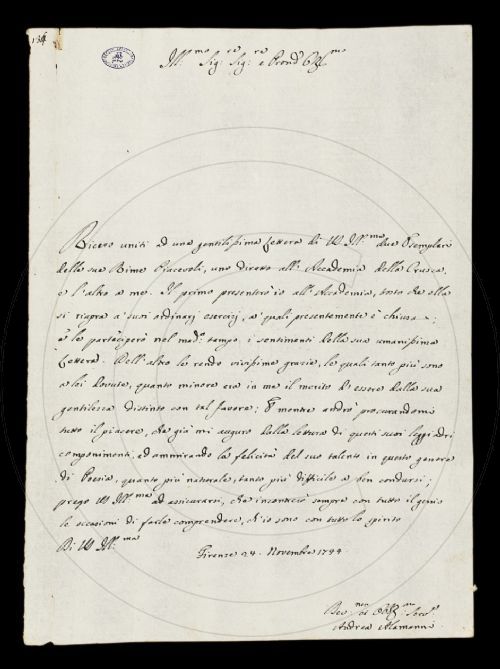 134
Ill.mo Sig.re Sig.re e Pron Col.mo
Ricevo uniti ad una gentilissima Lettera di VS Ill.ma due Esemplari
delle sue Rime Piacevoli, uno diretto all'Accademia della Crusca,
e l'altro a me. Il primo presenterò io all'Accademia, tosto che ella
si riapra a' suoi ordinarj esercizj, a' quali presentemente è chiusa;
e le parteciperò nel med.o tempo i sentimenti della sua umanissima
Lettera. Dell'altro le rendo vivissime grazie, le quali tanto più sono
a lei dovute, quanto minore era in me il merito di essere dalla sua
gentilezza distinto con tal favore; E mentre andrò procurandomi
tutto il piacere, che già mi auguro dalla lettura di questi suoi leggiadri
componimenti, ed ammirando la felicità del suo talento in questo genere
di Poesia, quanto più naturale, tanto più difficile a ben condursi;
prego VS Ill.ma ad assicurarsi, che incontrerò sempre con tutto il genio
le occasioni di farle comprendere, ch'io sono con tutto lo spirito
Di VS Ill.ma
Firenze 24. Novembre 1744.
Dev.mo ed Obb.mo Serv.e
Andrea Alamanni